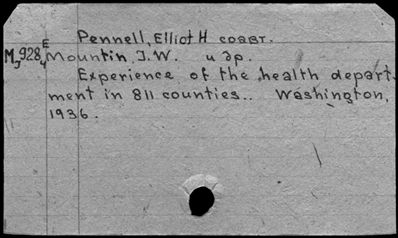 Pennell, Elliot H соавт.
M 928 E Mountin, J.W. и др.
Experience of the health depart-
ment in 811 counties.. Washington,
1936.